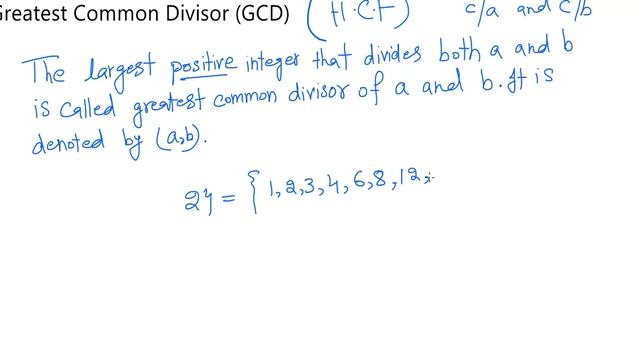 Greatest Common Divisor (GCD) (H.C.F) c/a and c/b
The largest positive integer that divides both a and b
is called greatest common divisor of a and b. It is
denoted by (a,b).
24 = { 1, 2, 3, 4, 6, 8, 12,